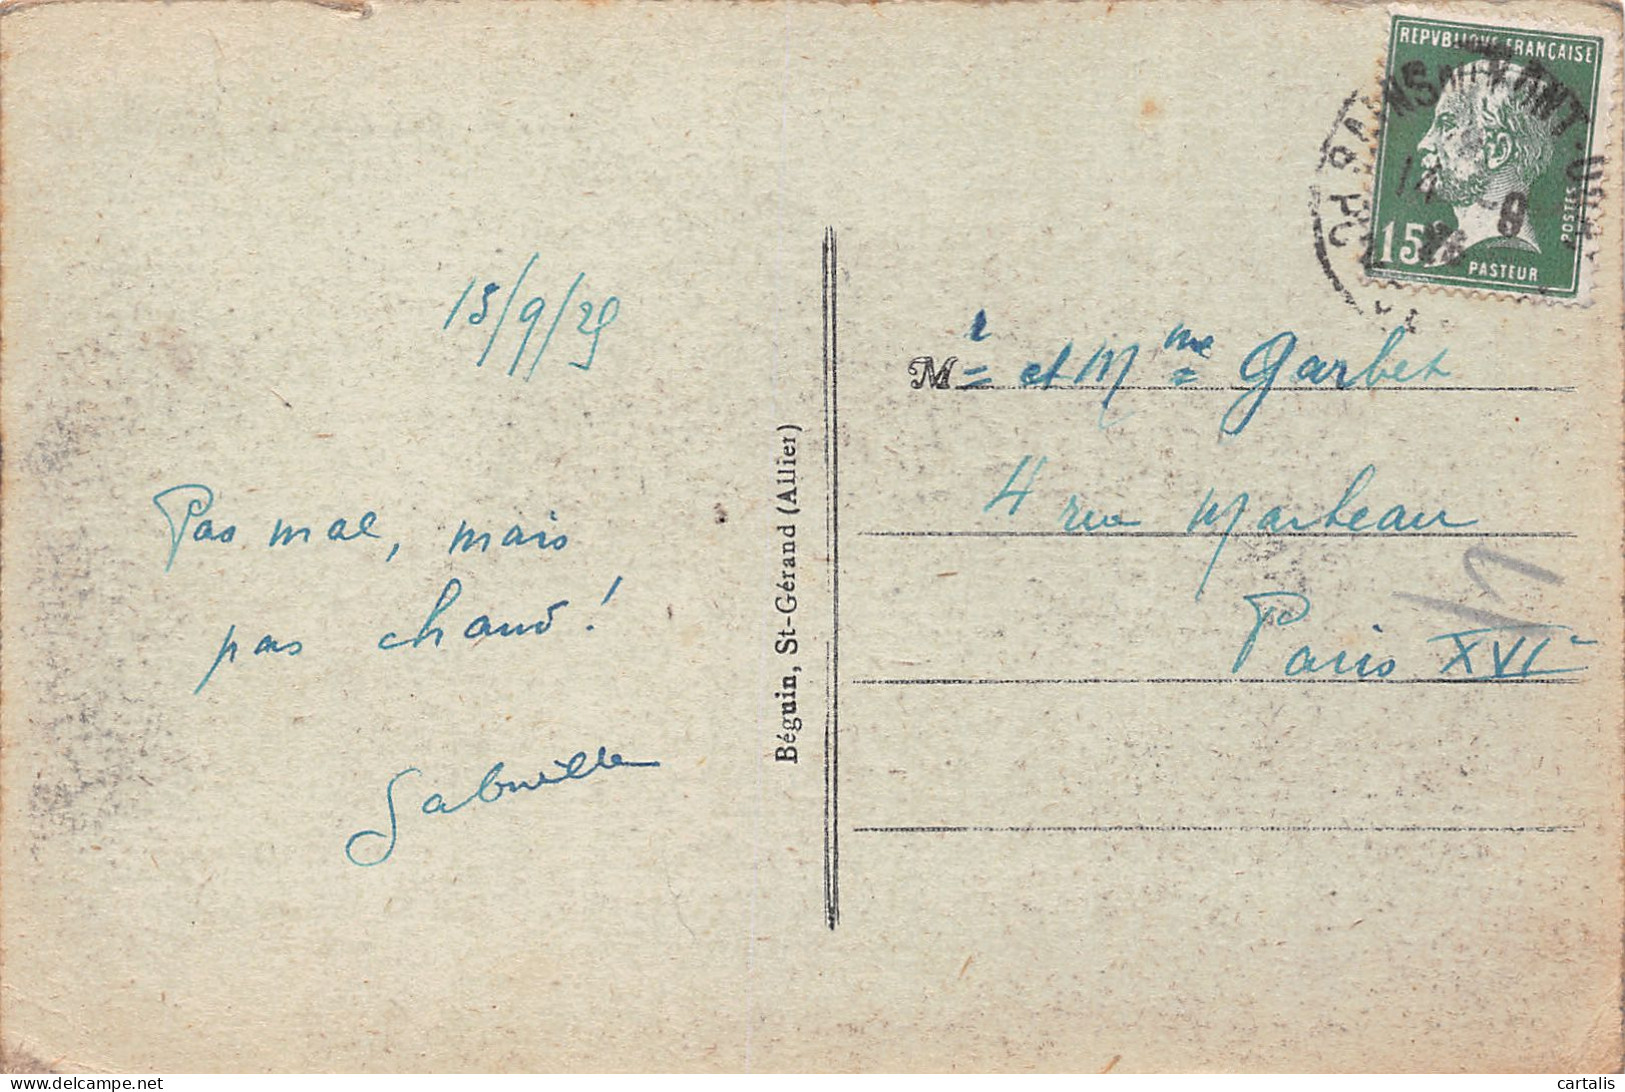 15/9/25
Pas mal, mais
pas chaud !
Gabrielle
Béguin, St-Gérand (Allier)
REPVBLIQUE FRANÇAISE
POSTES
15c
PASTEUR
14
9
Mr et Mme Garbet
4 rue Marbeau
Paris XVIe
cartalis
delcampe.net